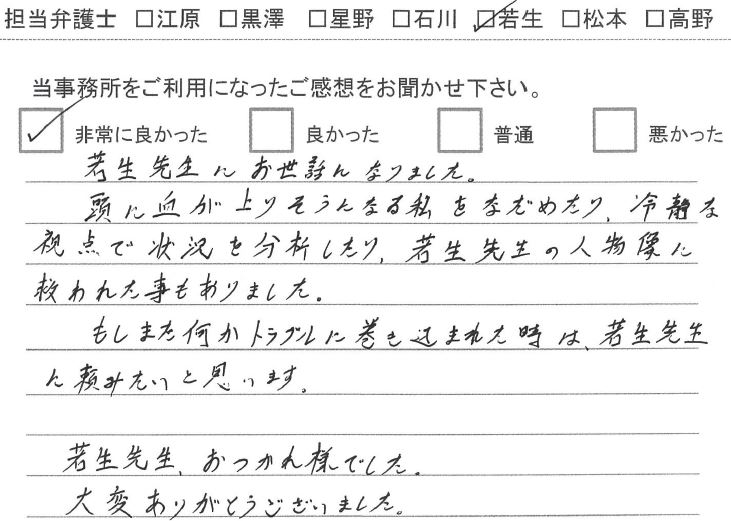 担当弁護士 □江原 □黒澤 □星野 □石川 ☑若生 □松本 □高野
当事務所をご利用になったご感想をお聞かせ下さい。
☑ 非常に良かった □ 良かった □ 普通 □ 悪かった
若生先生にお世話になりました。
頭に血が上りそうになる私をなだめたり、冷静な
視点で状況を分析したり、若生先生の人物像に
救われた事もありました。
もしまた何かトラブルに巻き込まれた時は、若生先生
に頼みたいと思います。
若生先生、おつかれ様でした。
大変ありがとうございました。